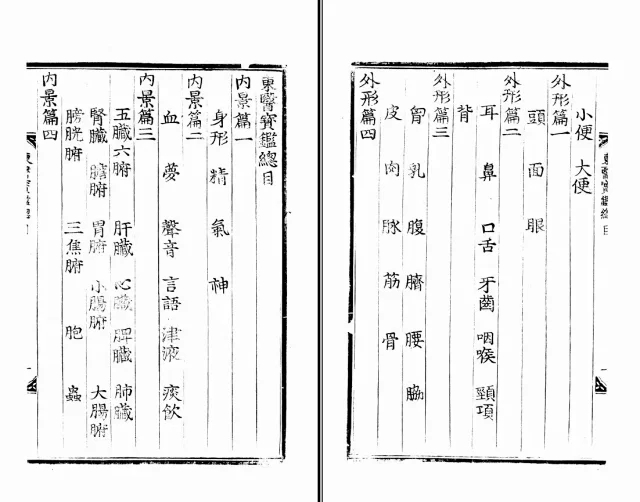 東醫寶鑑總目
內景篇一
身形 精 氣 神
內景篇二
血 夢 聲音 言語 津液 痰飮
內景篇三
五臟六腑 肝臟 心臟 脾臟 肺臟
腎臟 膽腑 胃腑 小腸腑 大腸腑
膀胱腑 三焦腑 胞 蟲
內景篇四
東醫寶鑑總目 一
東醫寶鑑總目 一
小便 大便
外形篇一
頭 面 眼
外形篇二
耳 鼻 口舌 牙齒 咽喉 頸項
背
外形篇三
胷 乳 腹 臍 腰 脇
皮 肉 脉 筋 骨
外形篇四